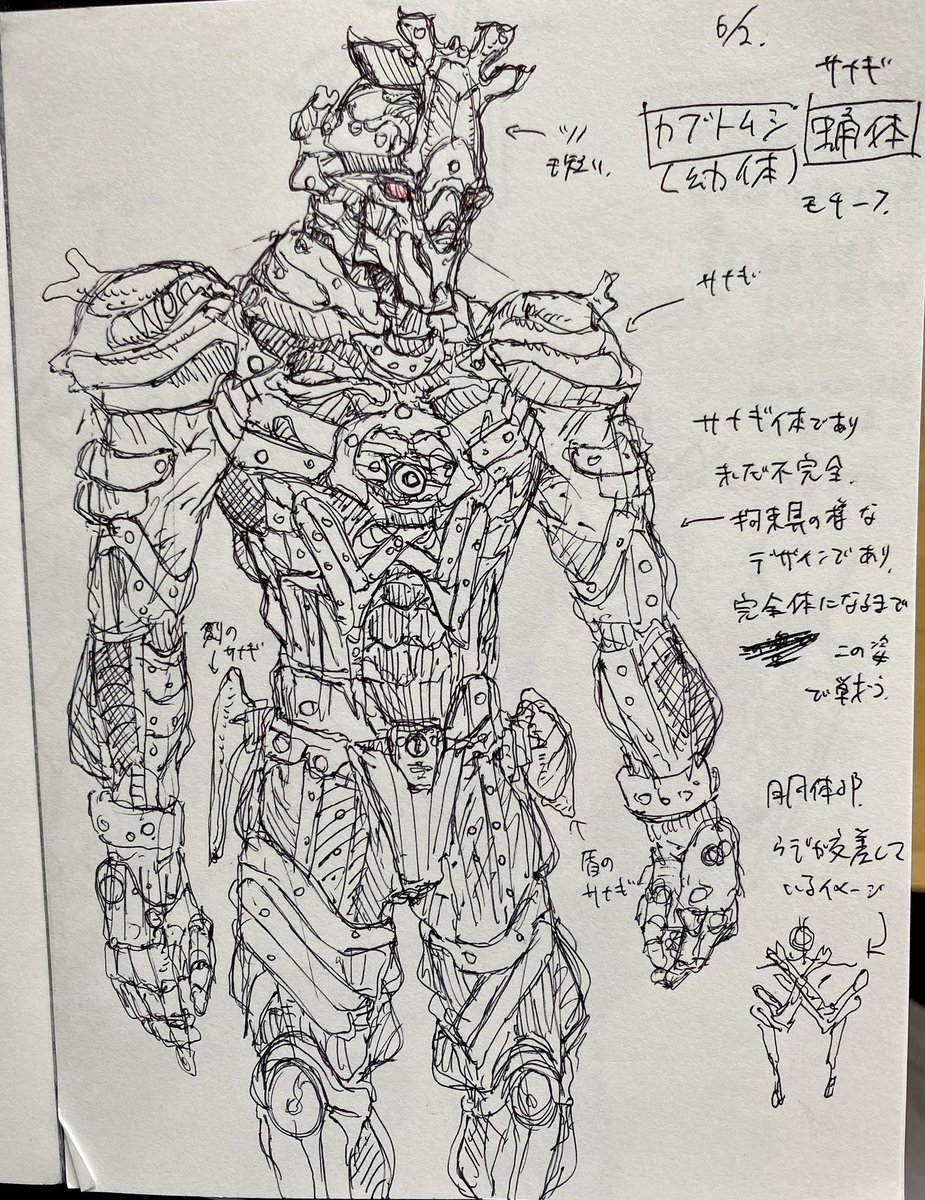 6/2.
サナギ
カブトムシ 蛹体
(幼体)
モチーフ.
ツノ
も短い.
サナギ
サナギ体であり
まだ不完全.
拘束具の様な
デザインであり,
完全体になるまで
この姿
で戦う.
剣の
サナギ
盾の
サナギ
胴体部.
ウデが交差して
いるイメージ